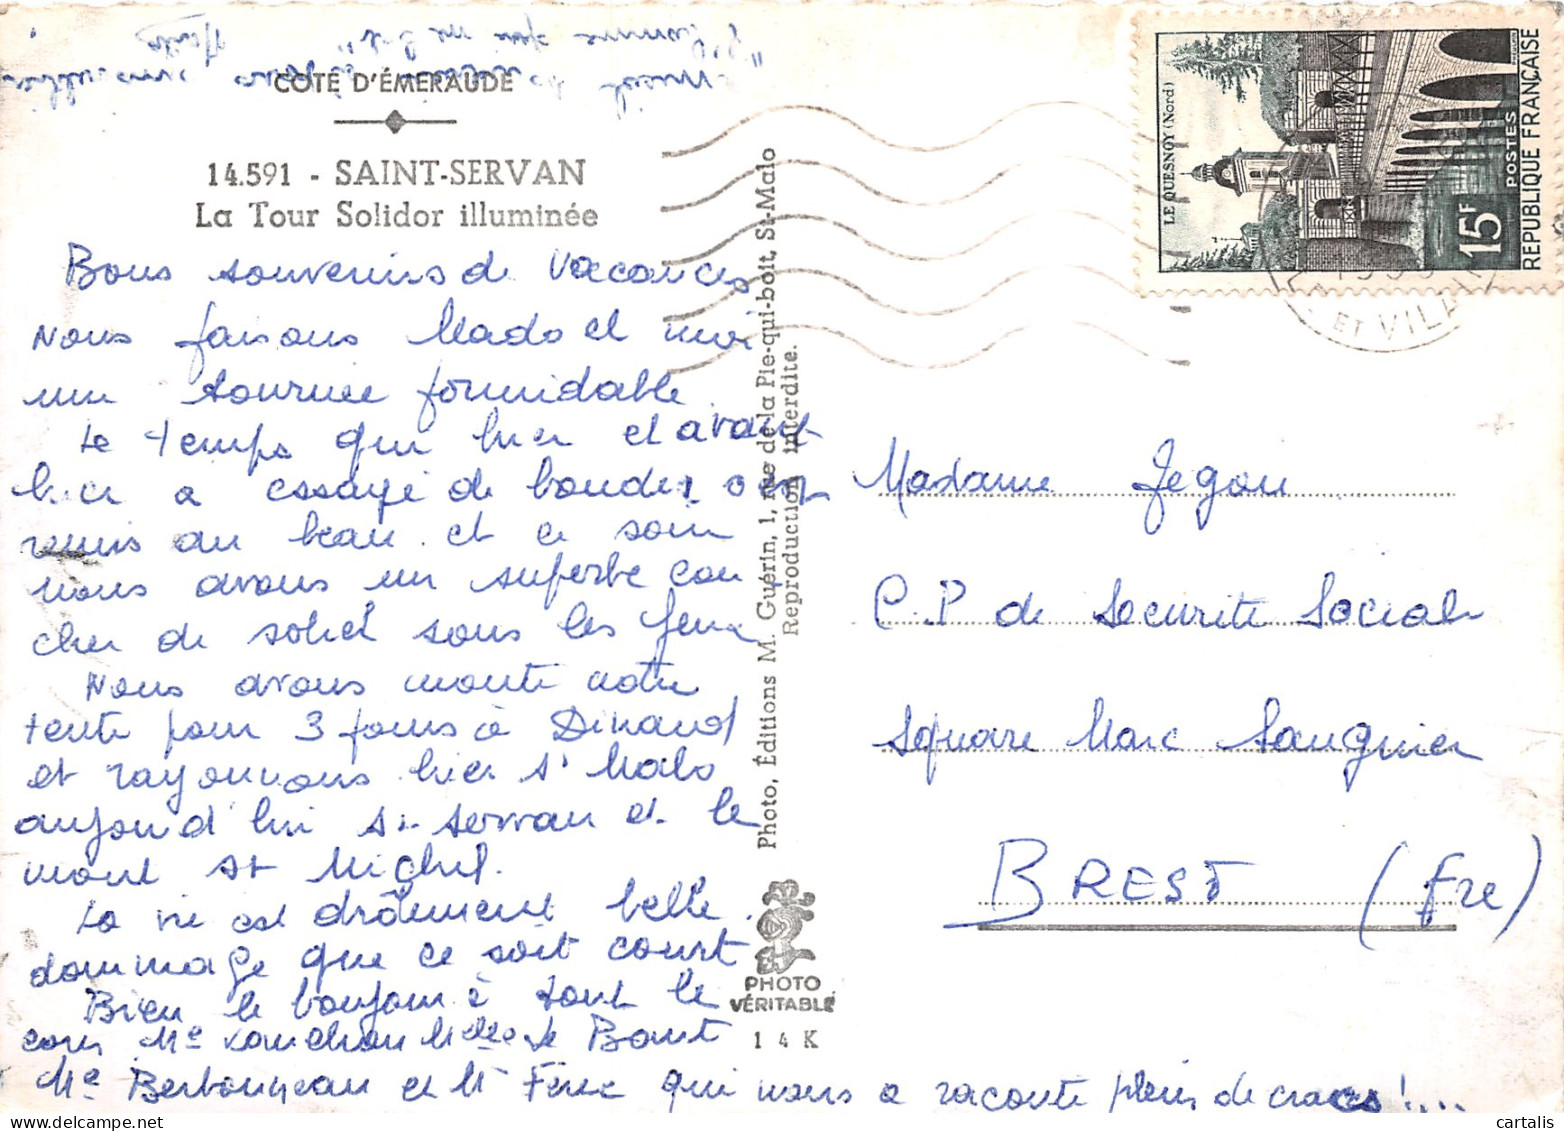 COTE D'ÉMERAUDE
14.591 - SAINT-SERVAN
La Tour Solidor illuminée
Bons souvenirs de vacances
Nous faisons Mado et moi
une tournée formidable.
Le temps qui hier et avant
hier a essayé de bouder, s'est
remis au beau. et ce soir
nous avons un superbe cou
cher de soleil sous les yeux
Nous avons monté notre
tente pour 3 jours à Dinard
et rayonnons hier St Malo
aujourd'hui St-Servan et le
mont St Michel.
La vie est drôlement belle.
dommage que ce soit court
Bien le bonjour à tout le
coin Me Melles Le Bont
Me et Mr qui nous a raconté pleins de cracs !....
Photo. Éditions M. Guérin, 1, rue de la Pie-qui-boit, St-Malo
Reproduction interdite.
PHOTO
VÉRITABLE
14K
LE QUESNOY (Nord)
15F
POSTES
REPUBLIQUE FRANÇAISE
ET VIL
Madame Jegou
C.P de Sécurité Sociale
Square Marc Sangnier
BREST (Fre)
cartalis
delcampe.net